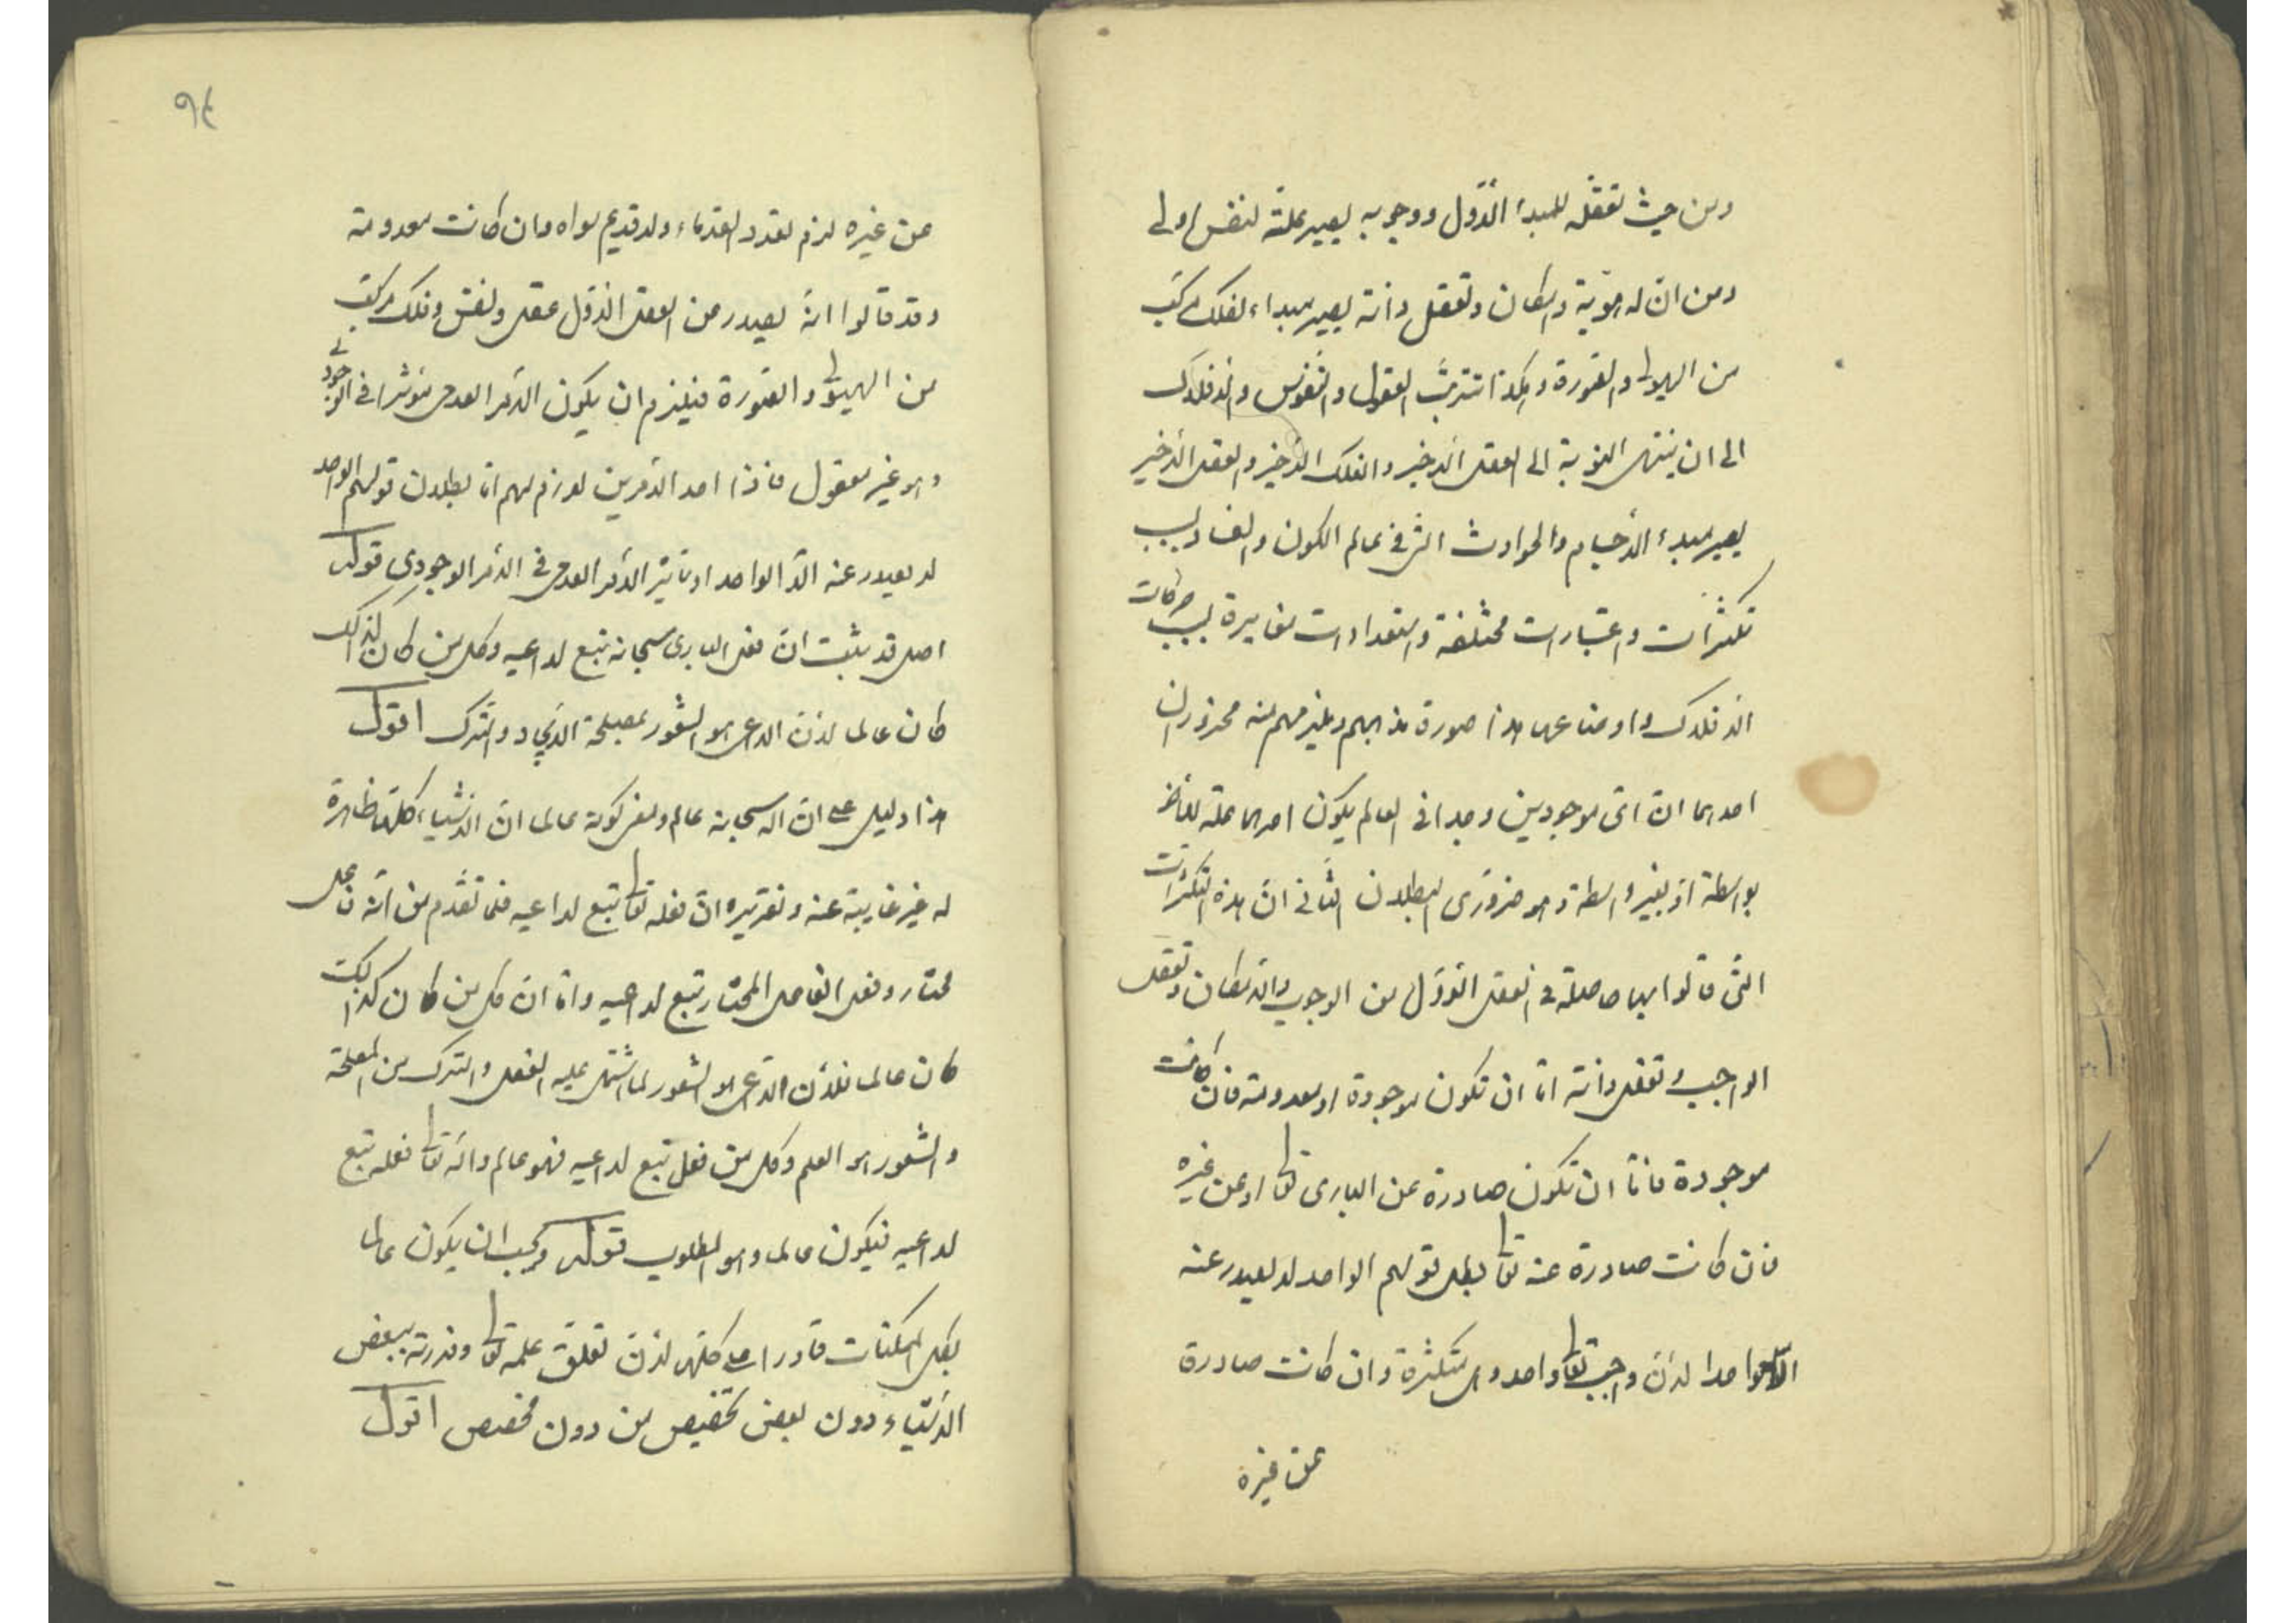 ومن حيث تعقله للمبدأ الأول ووجوبه يصير علة لنفس اولى
ومن ان له هوية وامكان وتعقل ذاته يصير مبداء لفلك مركب
من الهيولى والصورة وهكذا تترتب العقول والنفوس والافلاك
الى ان ينتهى النوبة الى العقل الأخير والفلك الأخير والعقل الأخير
يصير مبدء الأجسام والحوادث التى فى عالم الكون والفساد بسبب
تكثرات واعتبارات مختلفة واستعدادات مغايرة بسبب حركات
الافلاك واوضاعها هذا صورة مذهبهم ويلزمهم منه محذوران
احدهما ان اى موجودين وجدا فى العالم يكون احدهما علة للآخر
بواسطة او بغير واسطة وهو ضرورى البطلان الثانى ان هذه التكثرات
التى قالوا بها حاصلة فى العقل الأول من الوجوب والامكان وتعقل
الواجب وتعقل ذاته اما ان تكون موجودة او معدومة فان كانت
موجودة فاما ان تكون صادرة عن البارى تعالى او عن غيره
فان كانت صادرة عنه تعالى بطل قولهم الواحد لا يصدر عنه
الا واحد لان واجب تعالى واحد وهى متكثرة وان كانت صادرة
عن غيره
٩٤
عن غيره لزم تعدد القدماء ولا قديم سواه وان كانت معدومة
وقد قالوا انه يصدر من العقل الأول عقل ونفس وفلك مركب
من الهيولى والصورة فيلزم ان يكون الأمر العدمى مؤثرا فى الوجودى
وهو غير معقول فاذا احد الأمرين لازم لهم اما بطلان قولهم الواحد
لا يصدر عنه الا الواحد او تاثير الأمر العدمى فى الأمر الوجودى قوله
اصل قد ثبت ان فعل البارى سبحانه تبع لداعيه وكل من كان كذلك
كان عالما لان الداعى هو الشعور بمصلحة الايجاد والترك اقول
هذا دليل على ان الله سبحانه عالم ومعنى كونه عالما ان الاشياء كلها ظاهرة
له غير غايبة عنه وتقريره ان فعله تعالى تبع لداعيه فلما تقدم من انه فاعل
مختار وفعل الفاعل المختار تبع لداعيه واما ان كل من كان كذلك
كان عالما فلأن الداعى هو الشعور لما اشتمل عليه الفعل والترك من المصلحة
والشعور هو العلم وكل من فعل تبع لداعيه فهو عالم والله تعالى فعله تبع
لداعيه فيكون عالما وهو المطلوب قوله ويجب ان يكون عالما
بكل الممكنات قادرا على كلها لان تعلق علمه تعالى وقدرته ببعض
الاشياء دون بعض تخصيص من دون مخصص اقول